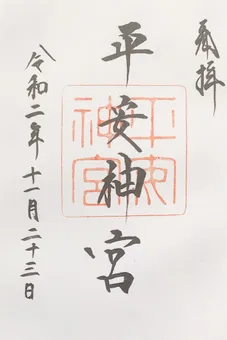 奉拝
平安神宮
平安
神宮
令和二年十一月二十三日